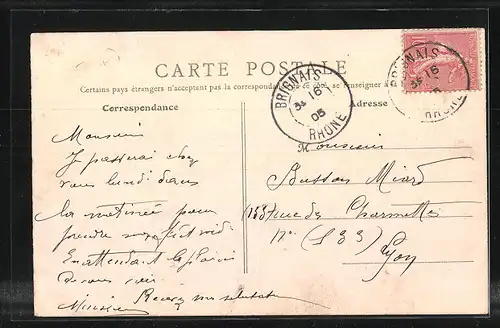 CARTE POSTALE
Certains pays étrangers n'acceptent pas la correspondance de ce côté, se renseigner à
Correspondance
Adresse
BRIGNAIS
16
05
RHONE
BRIGNAIS
16
05
RHONE
Monsieur
Je passerai chez
vous lundi dans
la matinée pour
prendre
En attendant le plaisir
de vous voir
Monsieur Recevez mes salutat
Monsieur
Buston Miard
rue des Charmettes
n° (133)
Lyon